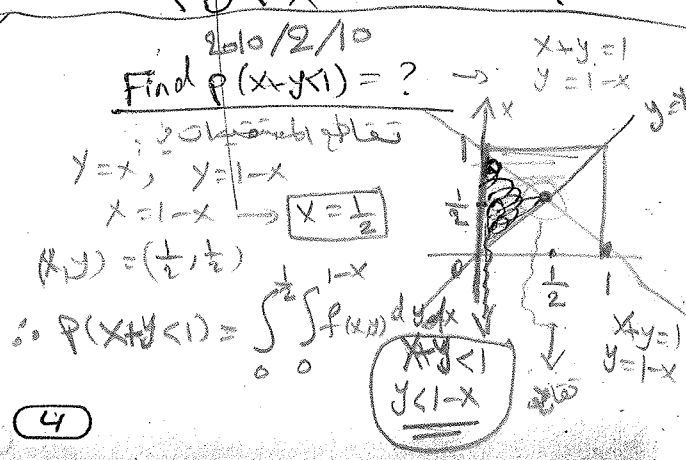 2010/2/10
Find P(x+y<1) = ? → x+y=1
y=1-x
y=x
تقاطع المنحنيات:
y=x, y=1-x
x=1-x → x=1/2
(x,y)=(1/2,1/2)
∴ P(x+y<1) = ∫₀^{1/2} ∫₀^{1-x} f(x,y) dy dx
x
1
1/2
0
1/2
1
x+y<1
y<1-x
x+y=1
y=1-x
4